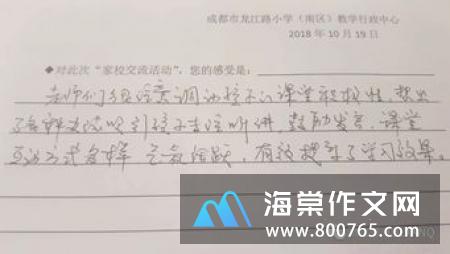 成都市龙江路小学（南区）教学行政中心
2018 年 10 月 19 日
◆对此次“家校交流活动”，您的感受是：
老师们注意调动孩子的课堂积极性，想出
了各种办法吸引孩子专注听讲，鼓励发言，课堂
互动方式多样 气氛活跃，有效提升了学习效果。
海棠作文网
www.800765.com